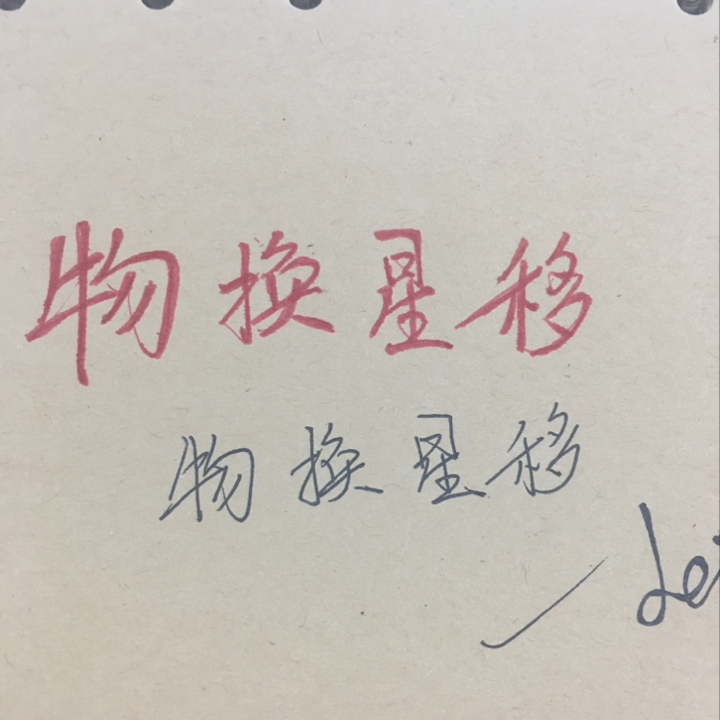 物换星移
物换星移